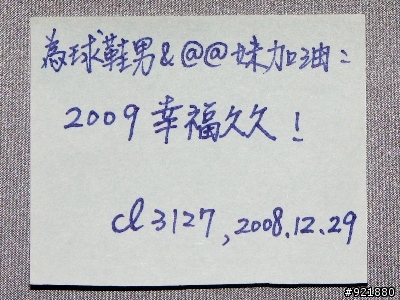 為球鞋男&@@妹加油：
2009 幸福久久！
cl3127, 2008.12.29
#921880